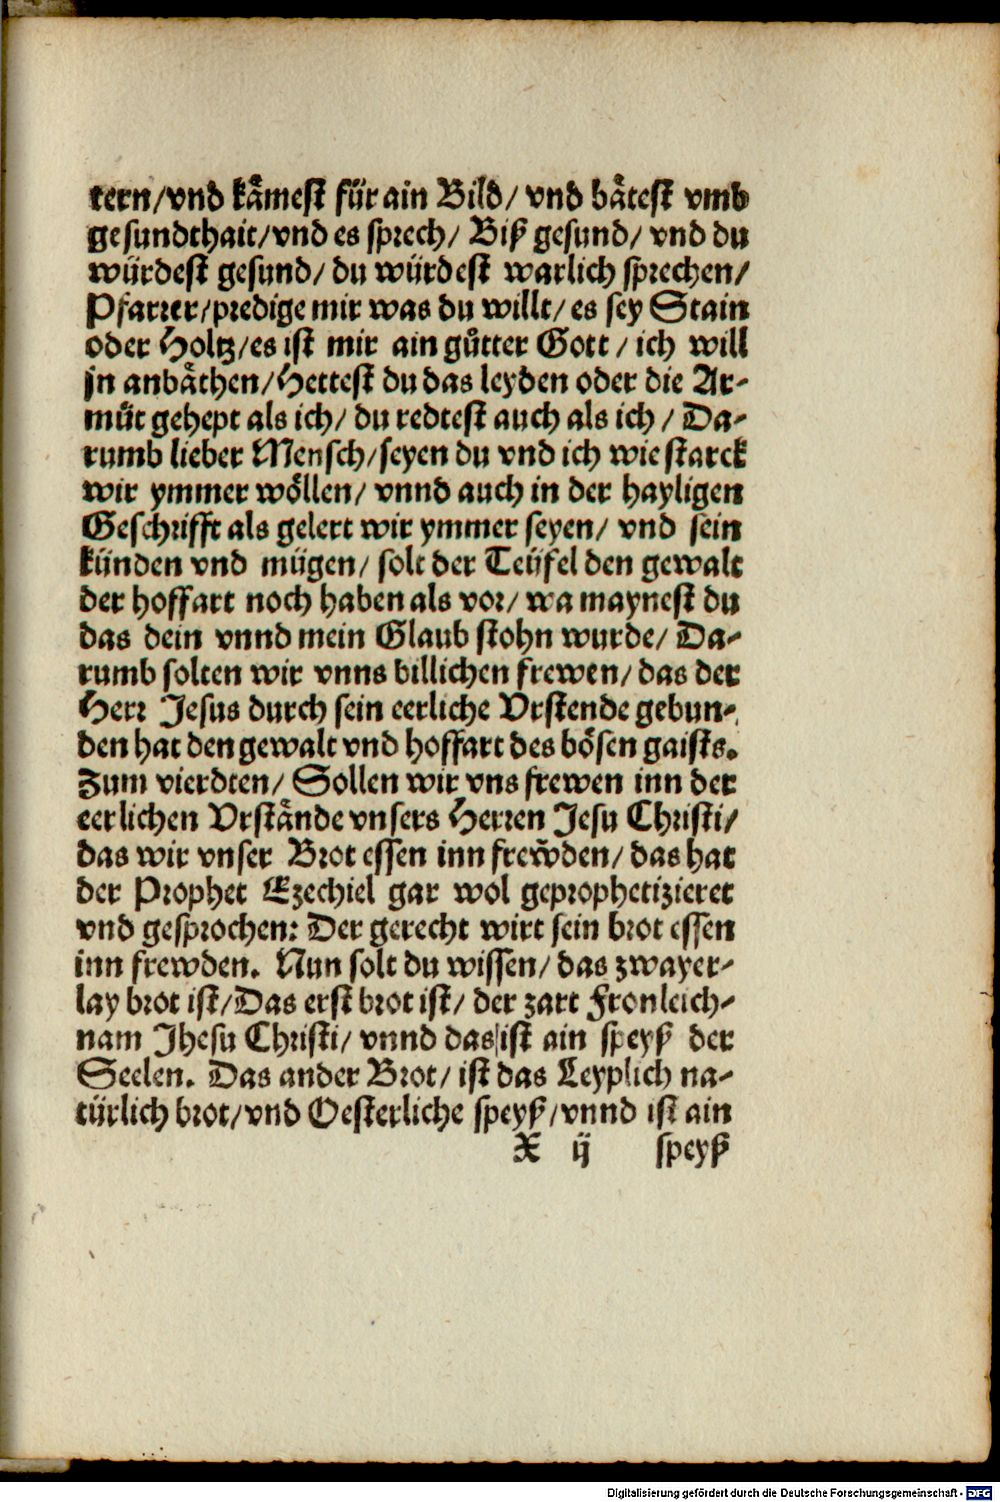 tern/vnd kåmest für ain Bild/ vnd båtest vmb
gesundthait/vnd es sprech/ Biß gesund/ vnd du
würdest gesund/ du würdest warlich sprechen/
Pfarrer/predige mir was du willt/ es sey Stain
oder Holtz/es ist mir ain gůtter Gott / ich will
jn anbåthen/Hettest du das leyden oder die Ar-
můt gehept als ich/ du redtest auch als ich / Da-
rumb lieber Mensch/seyen du vnd ich wie starck
wir ymmer wöllen/ vnnd auch in der hayligen
Geschrifft als gelert wir ymmer seyen/ vnd sein
künden vnd mügen/ solt der Teüfel den gewalt
der hoffart noch haben als vor/ wa maynest du
das dein vnnd mein Glaub stohn wurde/ Da-
rumb solten wir vnns billichen frewen/ das der
Herr Jesus durch sein eerliche Vrstende gebun-
den hat den gewalt vnd hoffart des bösen gaists.
Zum vierdten/ Sollen wir vns frewen inn der
eerlichen Vrstånde vnsers Herren Jesu Christi/
das wir vnser Brot essen inn frew̆den/ das hat
der Prophet Ezechiel gar wol geprophetizieret
vnd gesprochen: Der gerecht wirt sein brot essen
inn frewden. Nun solt du wissen/ das zwayer-
lay brot ist/Das erst brot ist/ der zart Fronleich-
nam Jhesu Christi/ vnnd das ist ain speyß der
Seelen. Das ander Brot/ ist das Leyplich na-
türlich brot/vnd Oesterliche speyß/vnnd ist ain
X ij speyß
Digitalisierung gefördert durch die Deutsche Forschungsgemeinschaft - DFG